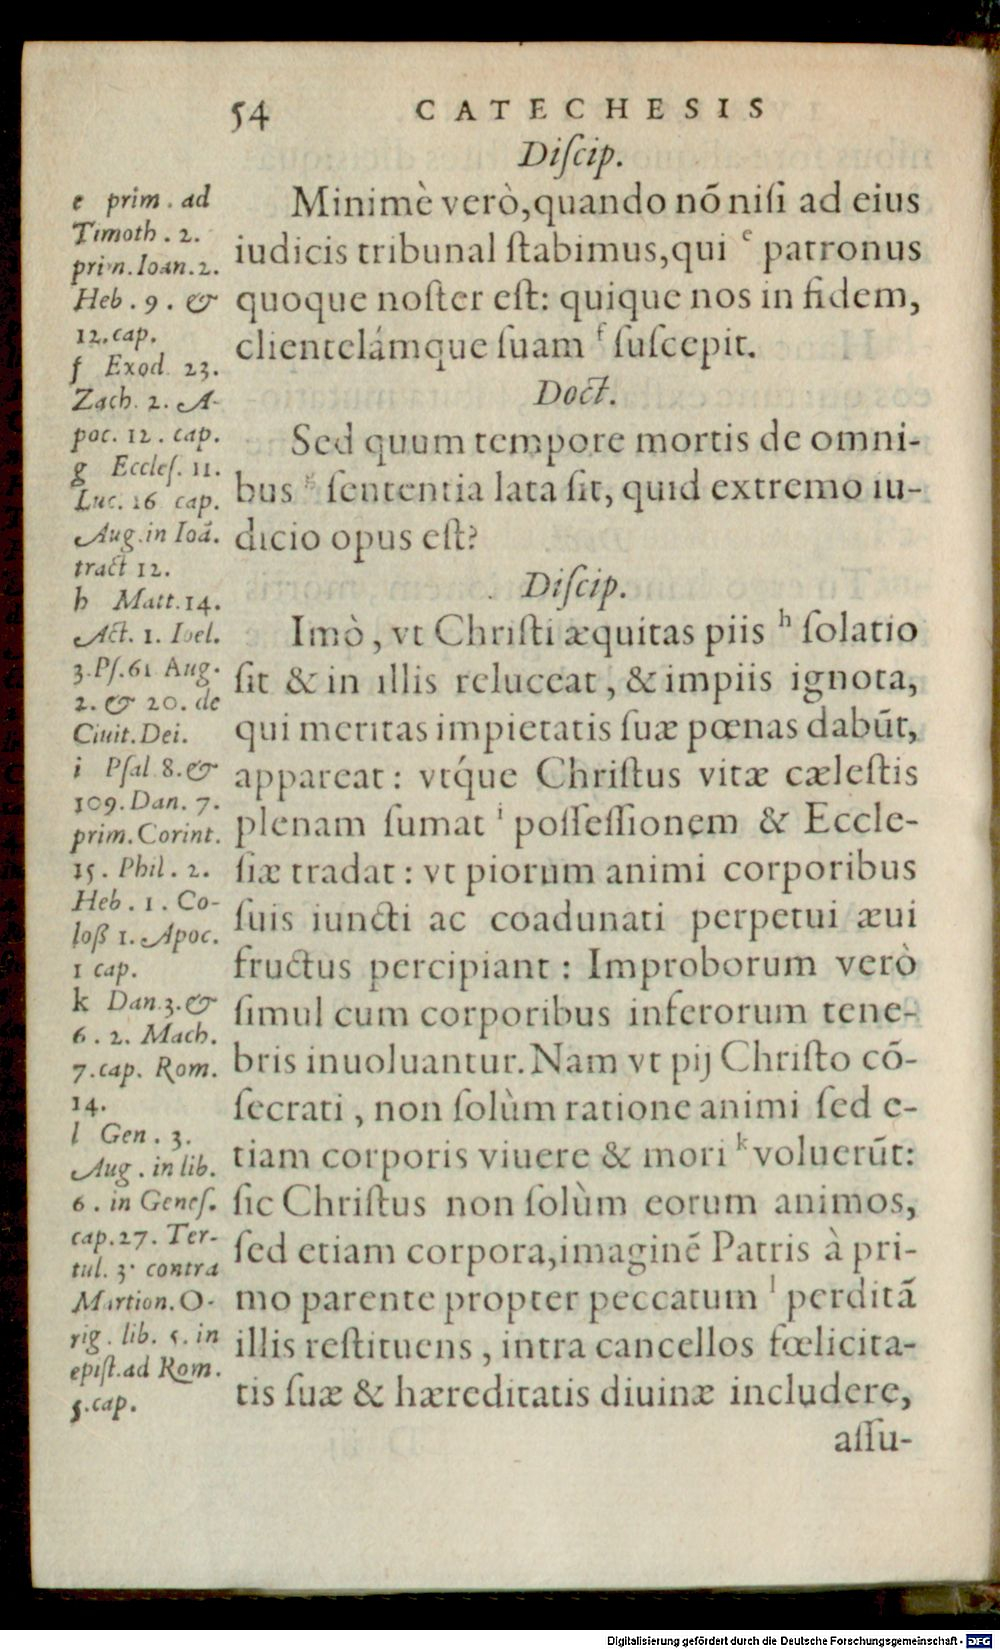 54 CATECHESIS
Diſcip.
Minimè verò,quando nõ niſi ad eius
iudicis tribunal ſtabimus,qui e patronus
quoque noſter eſt: quique nos in fidem,
clientelámque ſuam f ſuſcepit.
Doct.
Sed quum tempore mortis de omni-
bus g ſententia lata ſit, quid extremo iu-
dicio opus eſt?
Diſcip.
Imò, vt Chriſti æquitas piis h ſolatio
ſit & in illis reluceat, & impiis ignota,
qui meritas impietatis ſuæ pœnas dabũt,
appareat: vtq́ue Chriſtus vitæ cæleſtis
plenam ſumat i poſſeſſionem & Eccle-
ſiæ tradat: vt piorum animi corporibus
ſuis iuncti ac coadunati perpetui æui
fructus percipiant: Improborum verò
ſimul cum corporibus inferorum tene-
bris inuoluantur. Nam vt pij Chriſto cõ-
ſecrati, non ſolùm ratione animi ſed e-
tiam corporis viuere & mori k voluerũt:
ſic Chriſtus non ſolùm eorum animos,
ſed etiam corpora,imaginẽ Patris à pri-
mo parente propter peccatum l perditã
illis reſtituens, intra cancellos fœlicita-
tis ſuæ & hæreditatis diuinæ includere,
aſſu-
e prim. ad
Timoth. 2.
prim. Ioan. 2.
Heb. 9. &
12. cap.
f Exod. 23.
Zach. 2. A-
poc. 12. cap.
g Eccleſ. 11.
Luc. 16 cap.
Aug. in Ioã.
tract 12.
h Matt. 14.
Act. 1. Ioel.
3. Pſ. 61 Aug.
2. & 20. de
Ciuit. Dei.
i Pſal. 8. &
109. Dan. 7.
prim. Corint.
15. Phil. 2.
Heb. 1. Co-
loß 1. Apoc.
1 cap.
k Dan. 3. &
6. 2. Mach.
7. cap. Rom.
14.
l Gen. 3.
Aug. in lib.
6. in Geneſ.
cap. 27. Ter-
tul. 3. contra
Martion. O-
rig. lib. 5. in
epiſt. ad Rom.
5. cap.
Digitalisierung gefördert durch die Deutsche Forschungsgemeinschaft - DFG